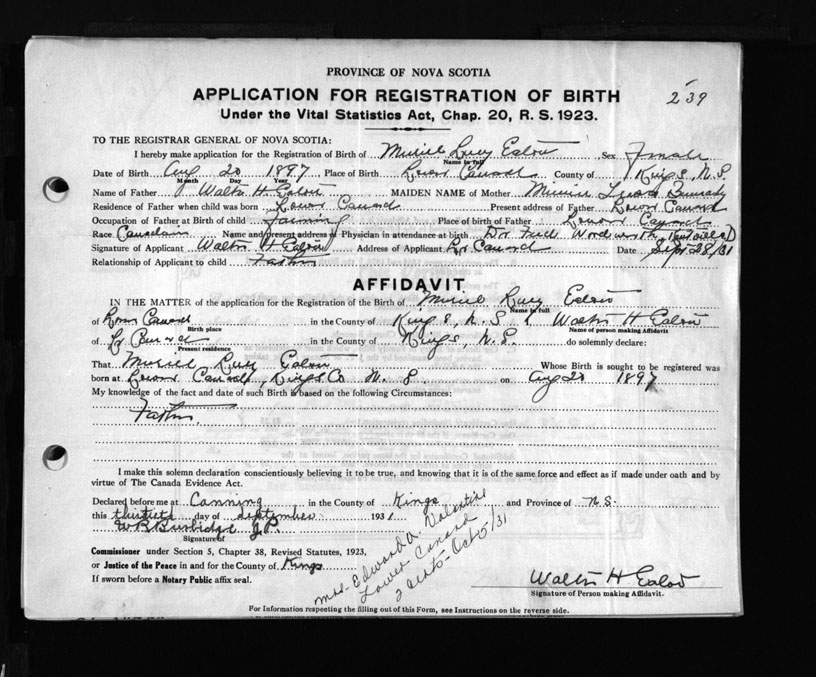 239
PROVINCE OF NOVA SCOTIA
APPLICATION FOR REGISTRATION OF BIRTH
Under the Vital Statistics Act, Chap. 20, R. S. 1923.
TO THE REGISTRAR GENERAL OF NOVA SCOTIA:
I hereby make application for the Registration of Birth of Muriel Lucy Eaton Sex Female
Name in full
Date of Birth Aug 20 1897 Place of Birth Lower Canard County of Kings, N.S.
Month Day Year
Name of Father Walter H Eaton MAIDEN NAME of Mother Minnie
Residence of Father when child was born Lower Canard Present address of Father Lower Canard
Occupation of Father at Birth of child Farming Place of birth of Father Lower Canard
Race Name and present address of Physician in attendance at birth Dr Fred Woodworth Kentville
Signature of Applicant Walter H Eaton Address of Applicant Lr Canard Date Sept 28/31
Relationship of Applicant to child Father
AFFIDAVIT
IN THE MATTER of the application for the Registration of the Birth of Muriel Lucy Eaton
Name in full
of Lower Canard in the County of Kings, N.S. I, Walter H Eaton
Birth place Name of person making Affidavit
of Lr Canard in the County of Kings, N.S. do solemnly declare:
Present residence
That Muriel Lucy Eaton Whose Birth is sought to be registered was
born at Lower Canard, Kings Co N.S. on Aug 20 1897
My knowledge of the fact and date of such Birth is based on the following Circumstances:
Father.
I make this solemn declaration conscientiously believing it to be true, and knowing that it is of the same force and effect as if made under oath and by
virtue of The Canada Evidence Act.
Declared before me at Canning in the County of Kings and Province of N.S.
this thirtieth day of September 1931
W B Burbidge J.P.
Signature of
Commissioner under Section 5, Chapter 38, Revised Statutes, 1923,
or Justice of the Peace in and for the County of Kings
If sworn before a Notary Public affix seal.
Mrs. Edward A. Valentine
Lower Canard
2 certs - Oct 5/31
Walter H Eaton
Signature of Person making Affidavit.
For Information respecting the filling out of this Form, see Instructions on the reverse side.